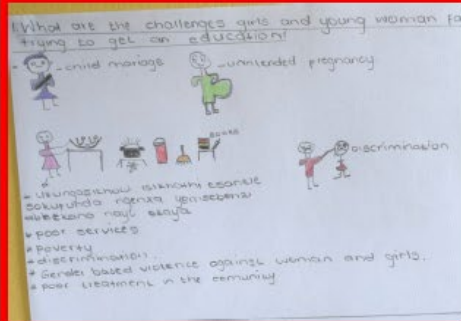 1. What are the challenges girls and young woman fa
trying to get an education!
- child mariage
- unintended pregnancy
BOOKS
Discrimination
- ukungasikhowu isikhathi esanele
sokufunda ngenxa yemisebenzi
ekhaya
* poor services
* poverty
* discrimination.
* Gender based violence against woman and girls.
* poor treatment in the comunity.